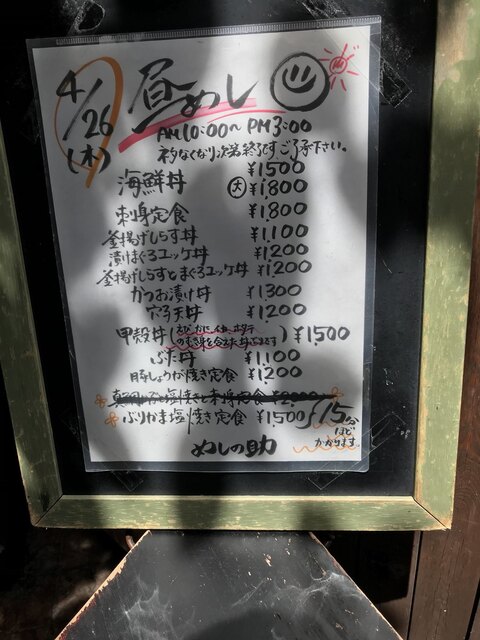 4/26
(木)
昼めし
AM10:00〜PM3:00
ネタなくなり次第終了です ご了承下さい。
海鮮丼 ¥1500
大 ¥1800
刺身定食 ¥1800
釜揚げしらす丼 ¥1100
漬けまぐろユッケ丼 ¥1200
釜揚げしらすとまぐろユッケ丼 ¥1200
かつお漬け丼 ¥1300
穴子天丼 ¥1200
甲殻丼(えび、かに、イカ、ホタテのすき身を合えた丼です)¥1500
ぶた丼 ¥1,100
豚しょうが焼き定食 ¥1200
塩焼きと刺身定食 ¥2000
ぶりかま塩焼き定食 ¥1,500
15分ほどかかります。
めしの助